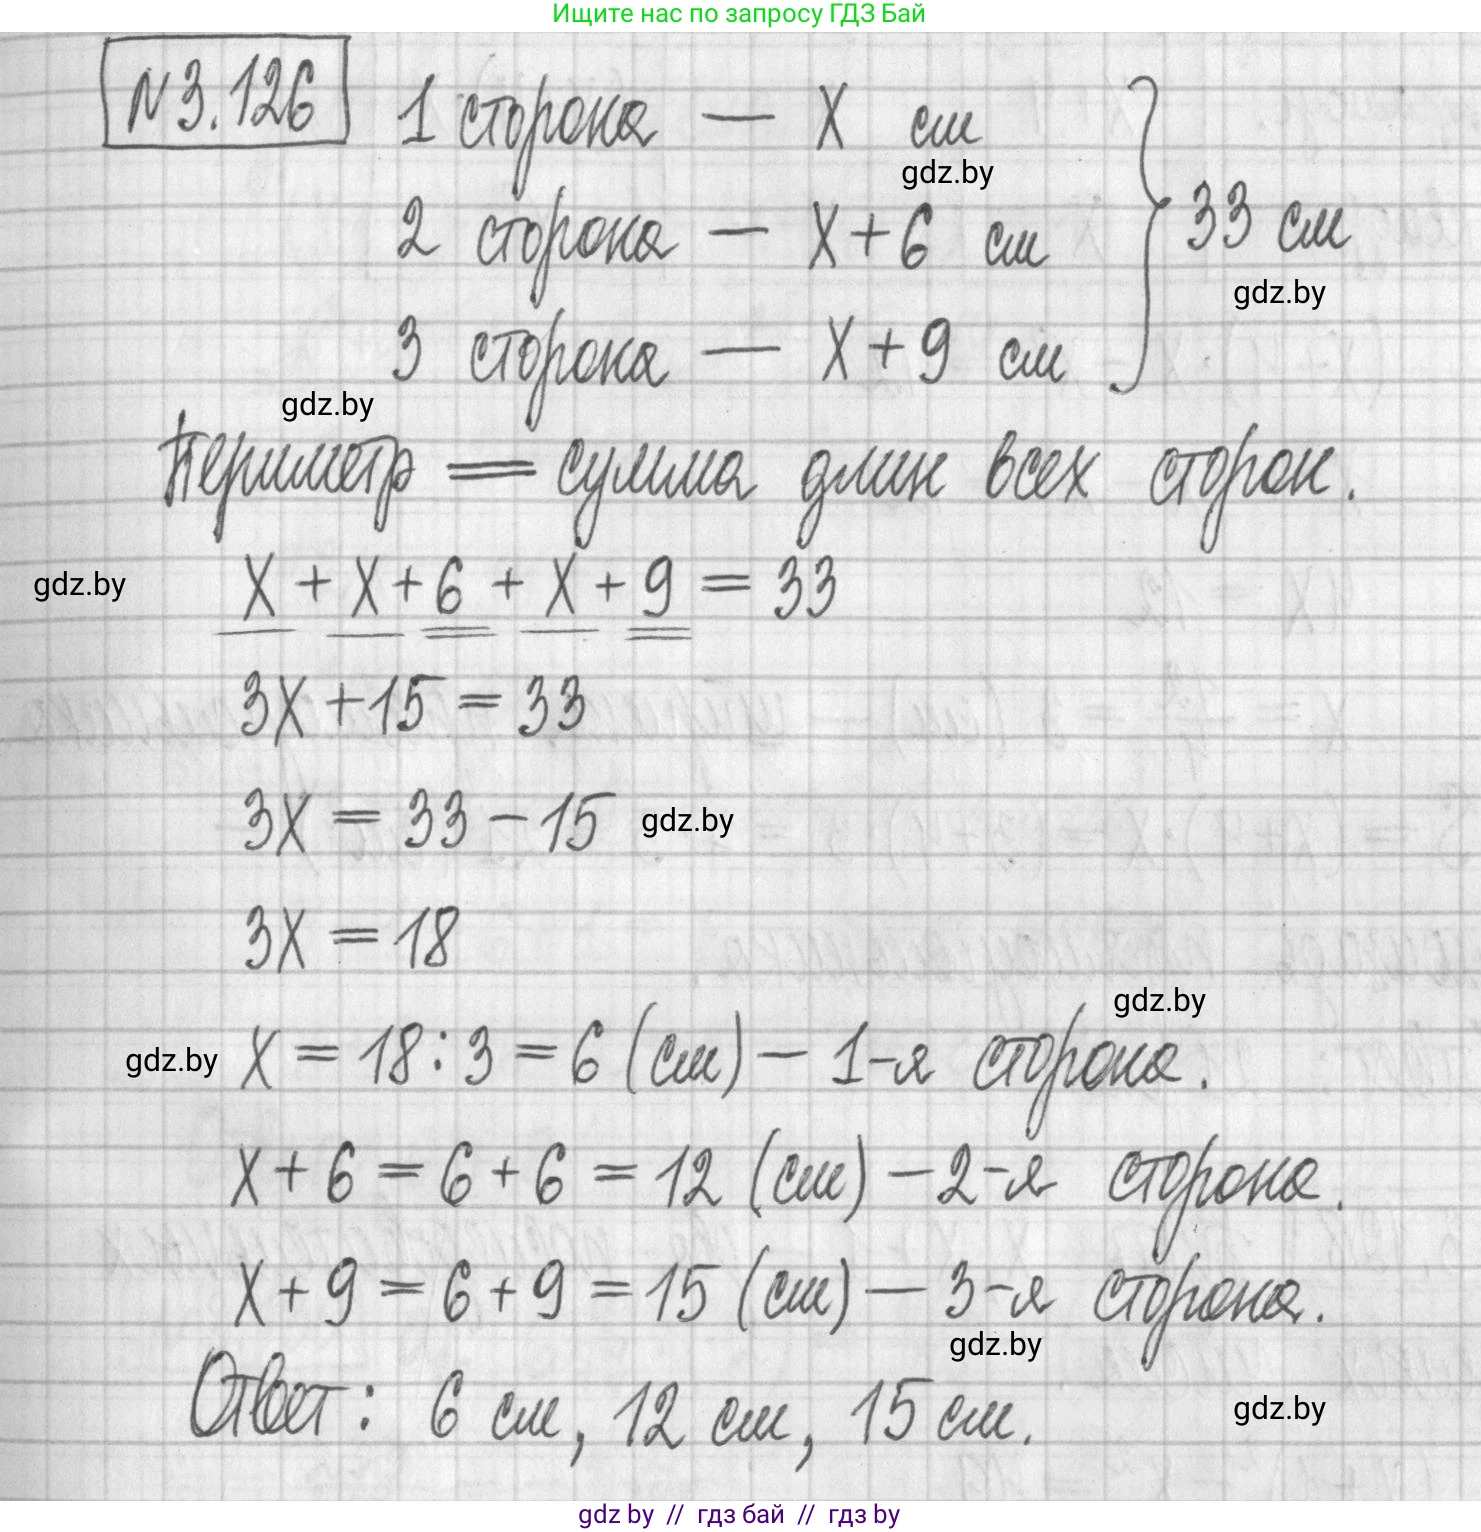 Ищите нас по запросу ГДЗ Бай
№3.126 1 сторона — x см
gdz.by
2 сторона — x+6 см } 33 см
gdz.by
3 сторона — x+9 см
gdz.by
Периметр = сумма длин всех сторон.
gdz.by x + x + 6 + x + 9 = 33
3x + 15 = 33
3x = 33 - 15 gdz.by
3x = 18
gdz.by
gdz.by x = 18 : 3 = 6 (см) — 1-я сторона.
x + 6 = 6 + 6 = 12 (см) — 2-я сторона.
x + 9 = 6 + 9 = 15 (см) — 3-я сторона.
gdz.by
Ответ: 6 см, 12 см, 15 см.
gdz.by
gdz by // гдз бай // гдз by